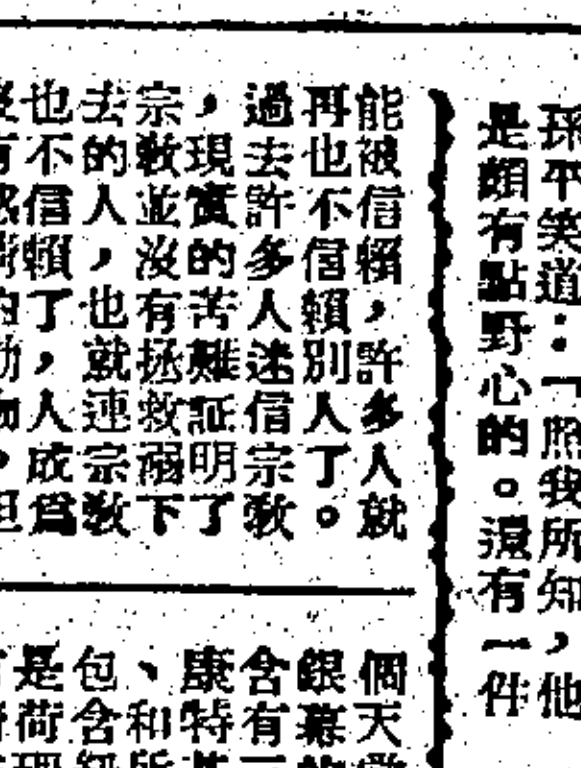 孫平笑道：「照我所知，他
是頗有點野心的。還有一件
能被信賴，許多人就
再也不信賴別人了。
過去許多人迷信宗教
，現實的苦難証明了
宗教並沒有拯救溺下
去的人，也就連宗教
也不信賴了，人成爲
個天
銀幕
含有
康特
、和所
包含
是荷